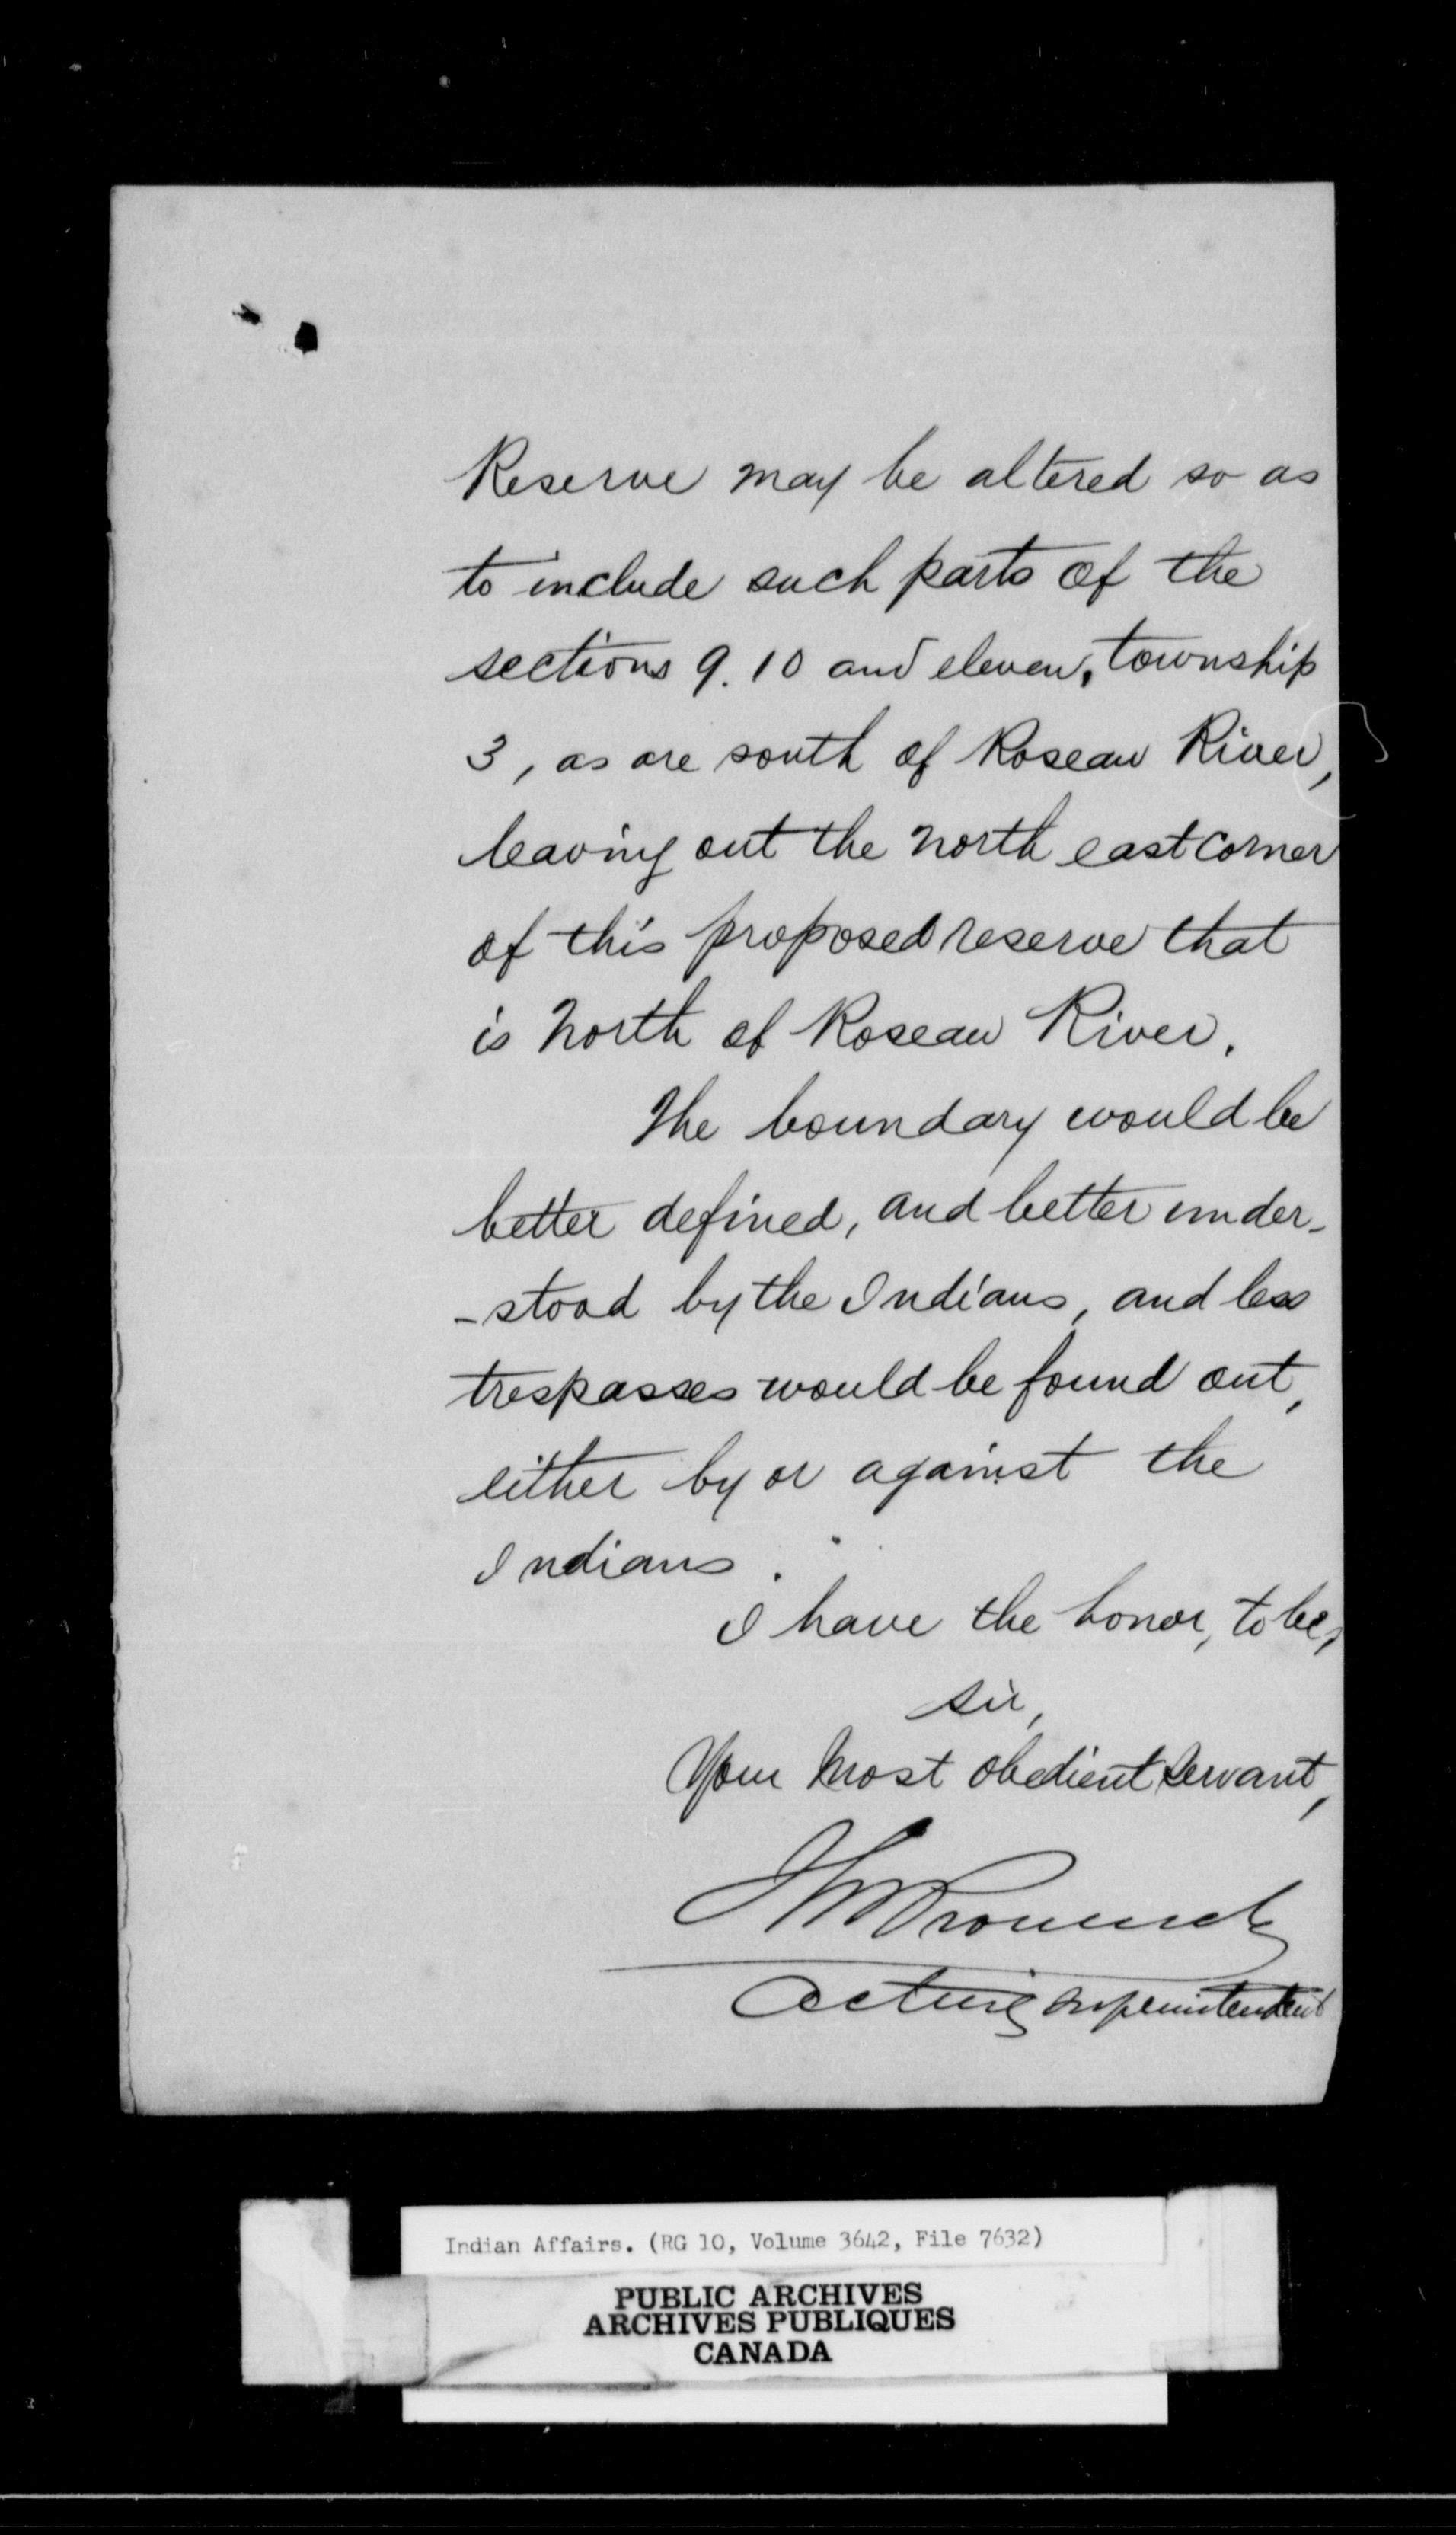 Reserve may be altered so as
to include such parts of the
sections 9. 10 and eleven, township
3, as are south of Roseau River,
leaving out the north east corner
of this proposed reserve that
is north of Roseau River.
The boundary would be
better defined, and better under-
-stood by the Indians, and less
trespasses would be found out,
either by or against the
Indians.
I have the honor, to be,
sir,
Your most obedient servant,
Acting Superintendent
Indian Affairs. (RG 10, Volume 3642, File 7632)
PUBLIC ARCHIVES
ARCHIVES PUBLIQUES
CANADA